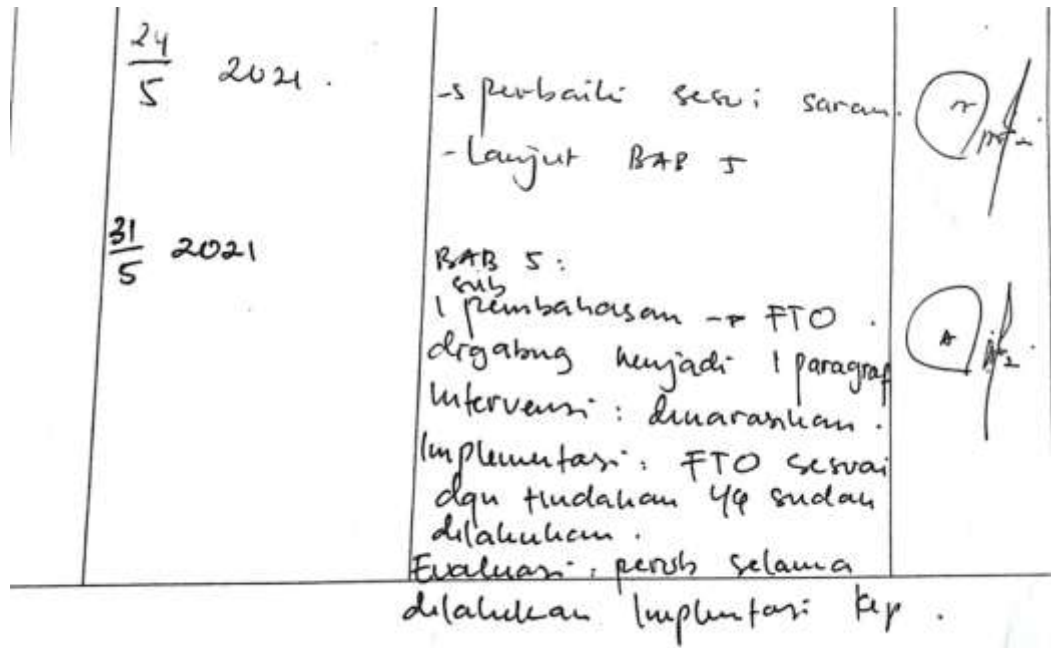 24/5 2021.
-s perbaiki sesui saran.
- Lanjut BAB 5
31/5 2021
BAB 5:
sub
1 pembahasan -> FTO.
digabung menjadi 1 paragraf
Intervensi: dinarasikan.
Implementasi: FTO sesuai
dgn tindakan yg sudah
dilakukan.
Evaluasi: perub selama
dilakukan Implentasi kep.